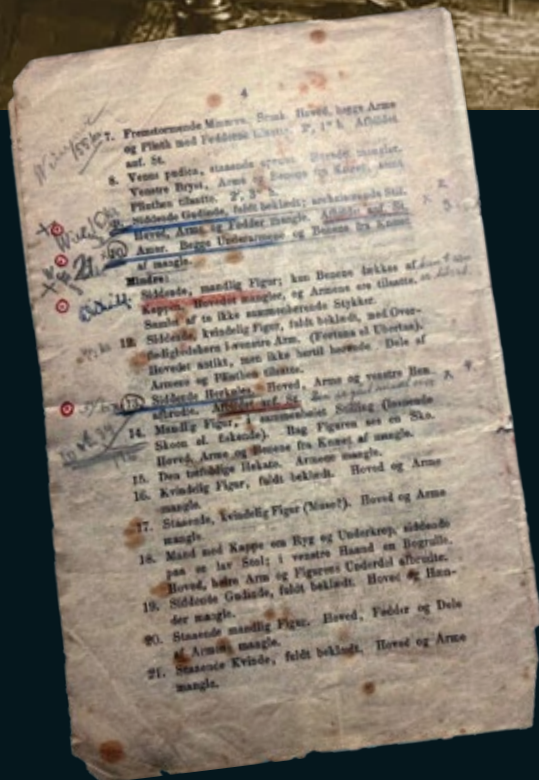 4
7. Fremstormende Minerva, Smuk. Hoved, begge Arme
og Plinth med Fødderne tilsatte. 2', 1" h. Afbildet
anf. St.
8. Venus pudica, staaende Hovedet mangler.
Venstre Bryst, Arme Benene fra Knæet, samt
Plinthen tilsatte. 2',
Siddende Gudinde, fuldt beklædt; archaiserende Stil.
Hoved, Arme og Fødder mangle. Afbildet anf. St.
10. Amor. Begge Underarmene og Benene fra Knæet
af mangle.
Mindre:
Siddende, mandlig Figur; kun Benene dækkes af
Kappen. Hovedet mangler, og Armene ere tilsatte,
Samlet af to ikke sammenhørende Stykker.
12. Siddende, kvindelig Figur, fuldt beklædt, med Over-
flødighedshorn i venstre Arm. (Fortuna el. Ubertas).
Hovedet antikt, men ikke hertil hørende. Dele af
Armene og Plinthen tilsatte.
13. Siddende Herkules. Hoved, Arm og venstre Ben
afbrudte. Afbildet anf. St.
14. Mandlig Figur, i sammenbøiet Stilling (løsnende
Skoen el. fiskende). Bag Figuren ses en Sko.
Hoved, Arme og Benene fra Knæet af mangle.
15. Den trefoldige Hekate. Armene mangle.
16. Kvindelig Figur, fuldt beklædt. Hoved og Arme
mangle.
17. Staaende, kvindelig Figur (Muse?). Hoved og Arme
mangle.
18. Mand med Kappe om Ryg og Underkrop, siddende
paa en lav Stol; i venstre Haand en Bogrulle.
Hoved, høire Arm og Figurens Underdel afbrudte.
19. Siddende Gudinde, fuldt beklædt. Hoved og Hæn-
der mangle.
20. Staaende mandlig Figur. Hoved, Fødder og Dele
af Armene mangle.
21. Staaende Kvinde, fuldt beklædt. Hoved og Arme
mangle.